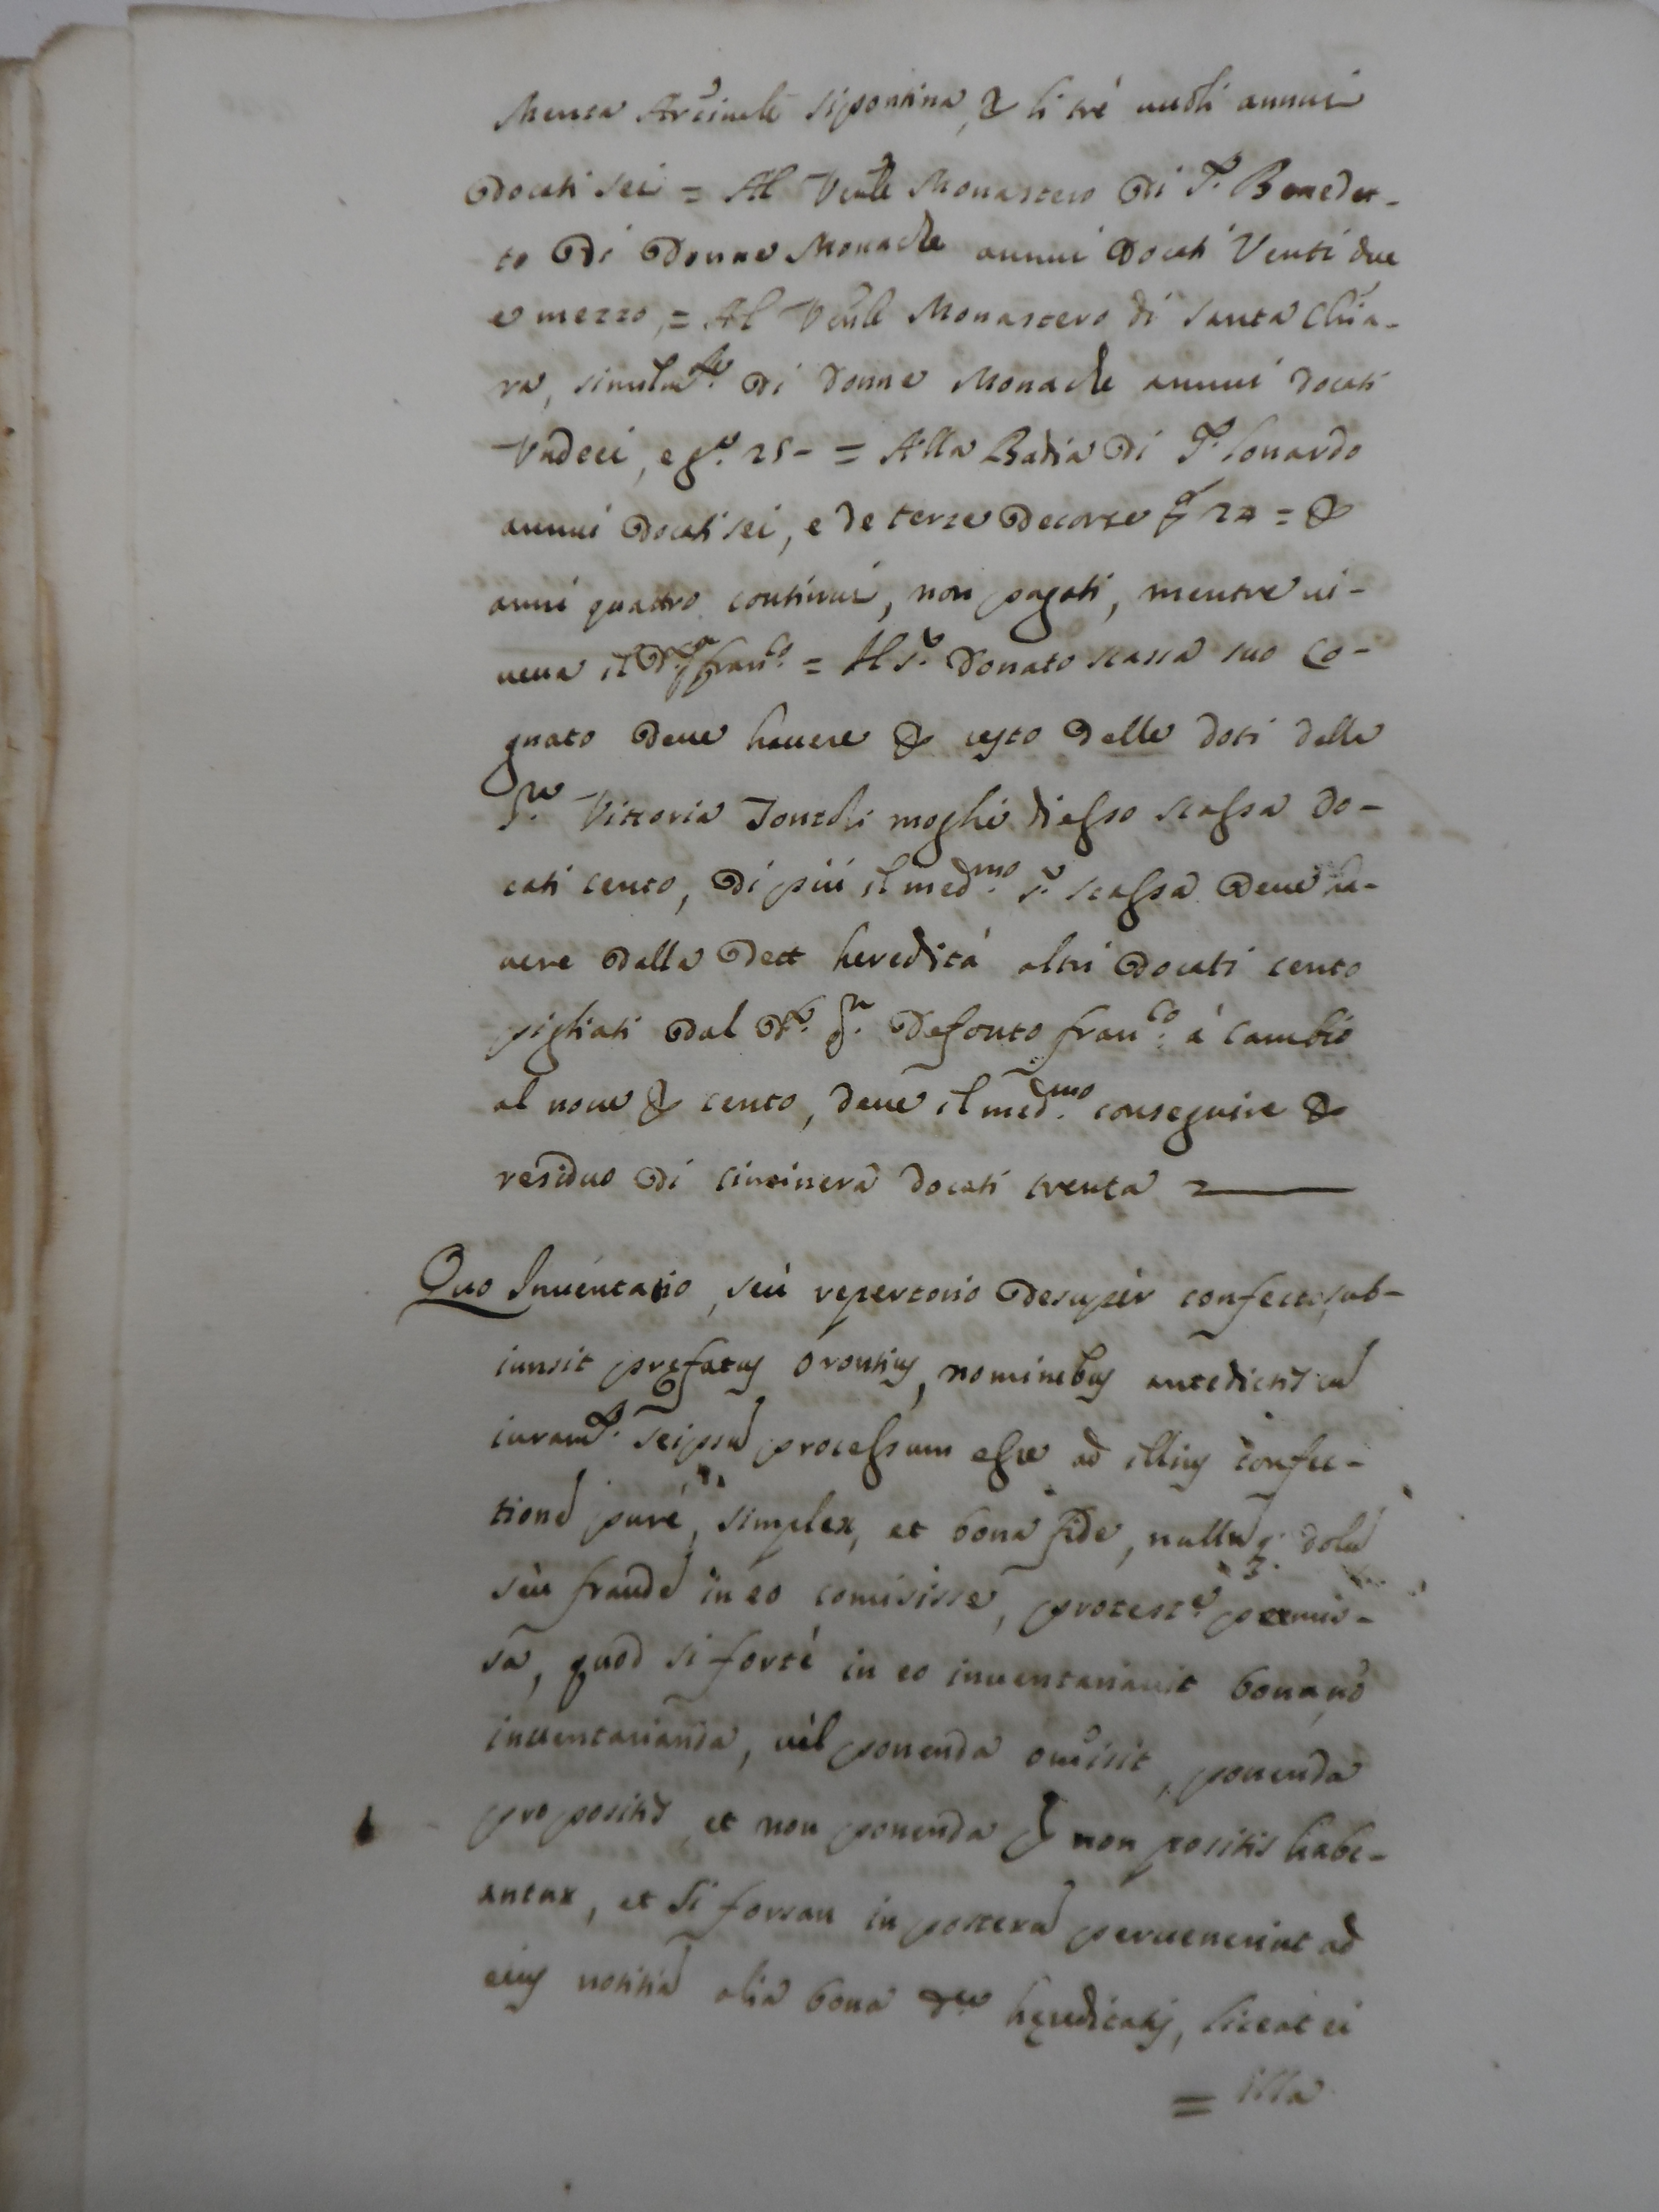 Mensa Arcivele Sipontina, & li trè annui
Docati sei = Al Venle Monastero di S. Benedet-
to di Donne Monache annui Docati Venti due
e mezzo, = Al Venle Monastero di Santa Chia-
ra, similmte. di Donne Monache annui docati
Undeci, e gr. 25 - = Alla Badia di S. Lonardo
annui Docati sei, e de terze decorse 24 = &
anni quatro continui, non pagati, mentre vi-
veva il franco. = Al Sr. Donato scassa suo Co-
gnato deve havere & resto delle doti della
Sra. Vittoria moglie di esso scassa do-
cati cento, di più il medmo. Sr. scassa deve ha-
vere dalla dett heredità altri Docati cento
pigliati dal do. Sr. Defonto franco. à Cambio
al nove & cento, deve il medmo. conseguire &
residuo di docati trenta
Quo Inventario, seù repertorio desupèr confecto, sub-
iunsit prefatus Orontius, nominibus antedictis cu
iuramto. seipsu processum esse ad illius confec-
tione purè, simplex, et bona fide, nullu q. dolu
sèu fraude in eo comisisse, proteste. premis-
sa, quod si fortè in eo inventariavit bona, no
inventarianda, vèl ponenda omisit, ponenda
pro positis et non ponenda p non positis habe-
antur, et si forsan in posteru pervenerint ad
eius notitia alia bona de hereditatis, liceat ei
= illa